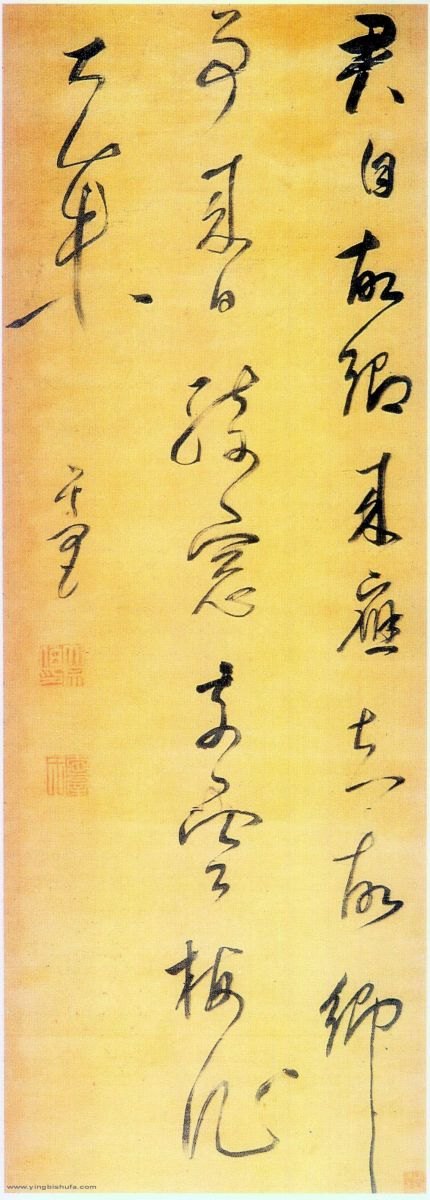 君自故鄉來應知故鄉
事來日綺窓前梅
花未
www.yingbishufa.com